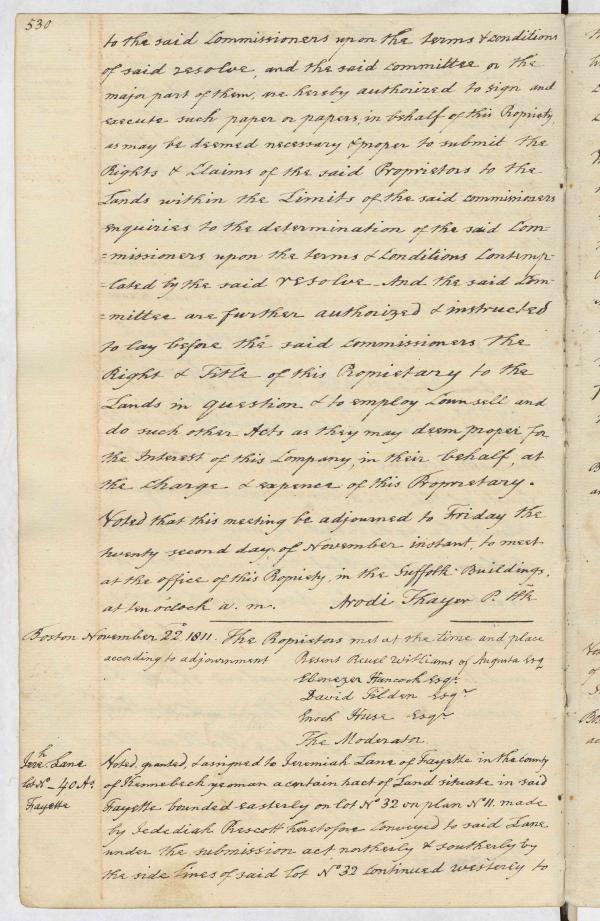 530
to the said Commissioners upon the terms & conditions
of said resolve, and the said committee or the
major part of them, are hereby authorized to sign and
execute such paper or papers, in behalf of this Propriety,
as may be deemed necessary & proper to submit the
Rights & Claims of the said Proprietors to the
Lands within the Limits of the said commissioners
enquiries to the determination of the said Com-
=missioners upon the terms & Conditions Contemp-
=lated by the said resolve - And the said Com-
=mittee are further authorized & instructed
to lay before the said commissioners the
Right & Title of this Propietary to the
Lands in question & to employ Counsell and
do such other Acts as they may deem proper for
the Interest of this Company, in their behalf, at
the charge & expence of this Proprietary.
Voted that this meeting be adjourned to Friday the
twenty second day of November instant, to meet
at the office of this Propiety, in the Suffolk Buildings,
at ten oclock a. m. Arodi Thayer P. Clk
Boston November 22d 1811. The Proprietors met at the time and place
according to adjournment Present Reuel Williams of Augusta Esq
Ebenezer Hancock Esqr.
David Tilden Esqr
Enoch Huse Esqr
The Moderator
Jereh. Lane
lot No - 40 As.
Fayette
Voted, granted, & assigned to Jeremiah Lane of Fayette in the county
of Kennebeck yeoman a certain tract of Land situate in said
Fayette bounded easterly on lot No 32 on plan No 11. made
by Jedediah Prescott heretofore Conveyed to said Lane
under the submission act northerly & southerly by
the side lines of said lot No 32 continued westerly to